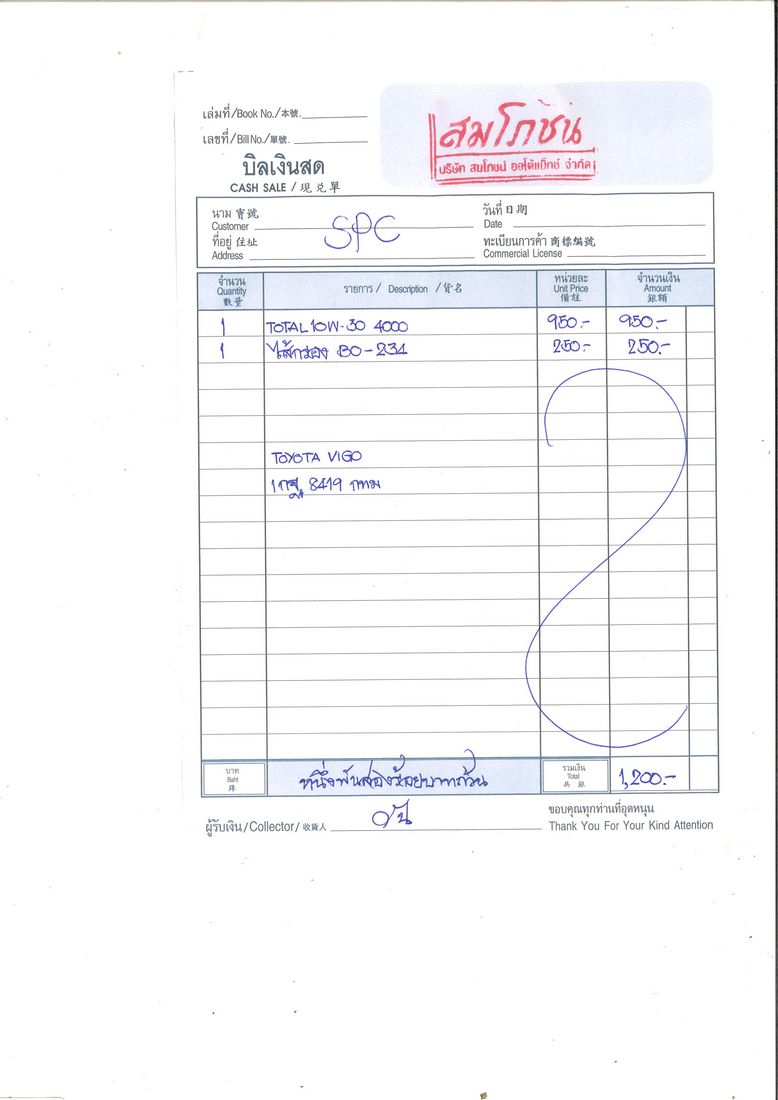 เล่มที่/Book No./本號.
เลขที่/Bill No./單號.
สมโภชน์
บริษัท สมโภชน์ ออโต้แอ็กซ์ จำกัด
บิลเงินสด
CASH SALE / 現兑單
นาม 寶號
Customer
SPC
วันที่ 日期
Date
ที่อยู่ 住址
Address
ทะเบียนการค้า 商標編號
Commercial License
จำนวน
Quantity
數量
รายการ / Description / 貨名
หน่วยละ
Unit Price
價註
จำนวนเงิน
Amount
銀額
1 TOTAL 10W-30 4000 950.- 950.-
1 ไส้กรอง BO-234 250.- 250.-
TOYOTA VIGO
1กฐ 8419 กทม
บาท
Baht
銖
หนึ่งพันสองร้อยบาทถ้วน
รวมเงิน
Total
共銀
1,200.-
ผู้รับเงิน/Collector/收貨人
ขอบคุณทุกท่านที่อุดหนุน
Thank You For Your Kind Attention